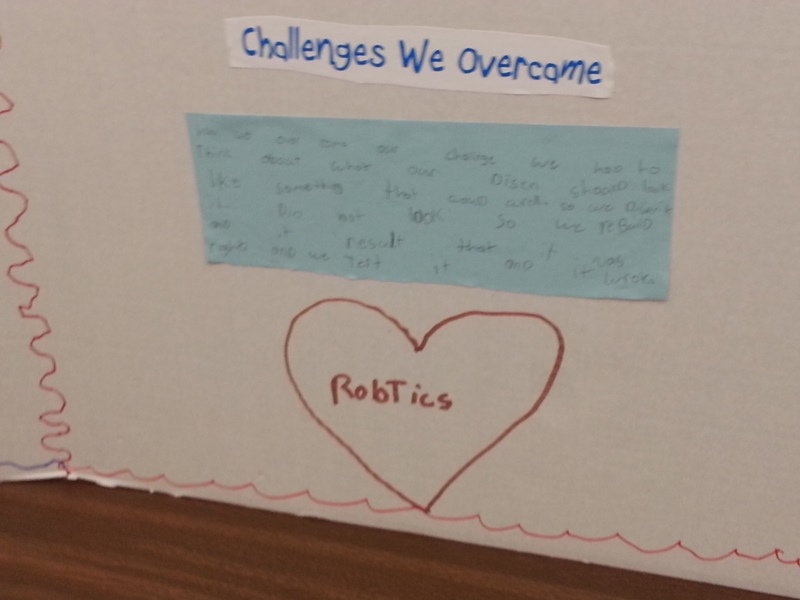 Challenges We Overcame
How we over came our challenge we had to
Think about what our Disen should look
like something that woud work so we
it Din not look so we reBuilD
and it result that it was
right and we Test it and it
RobTics